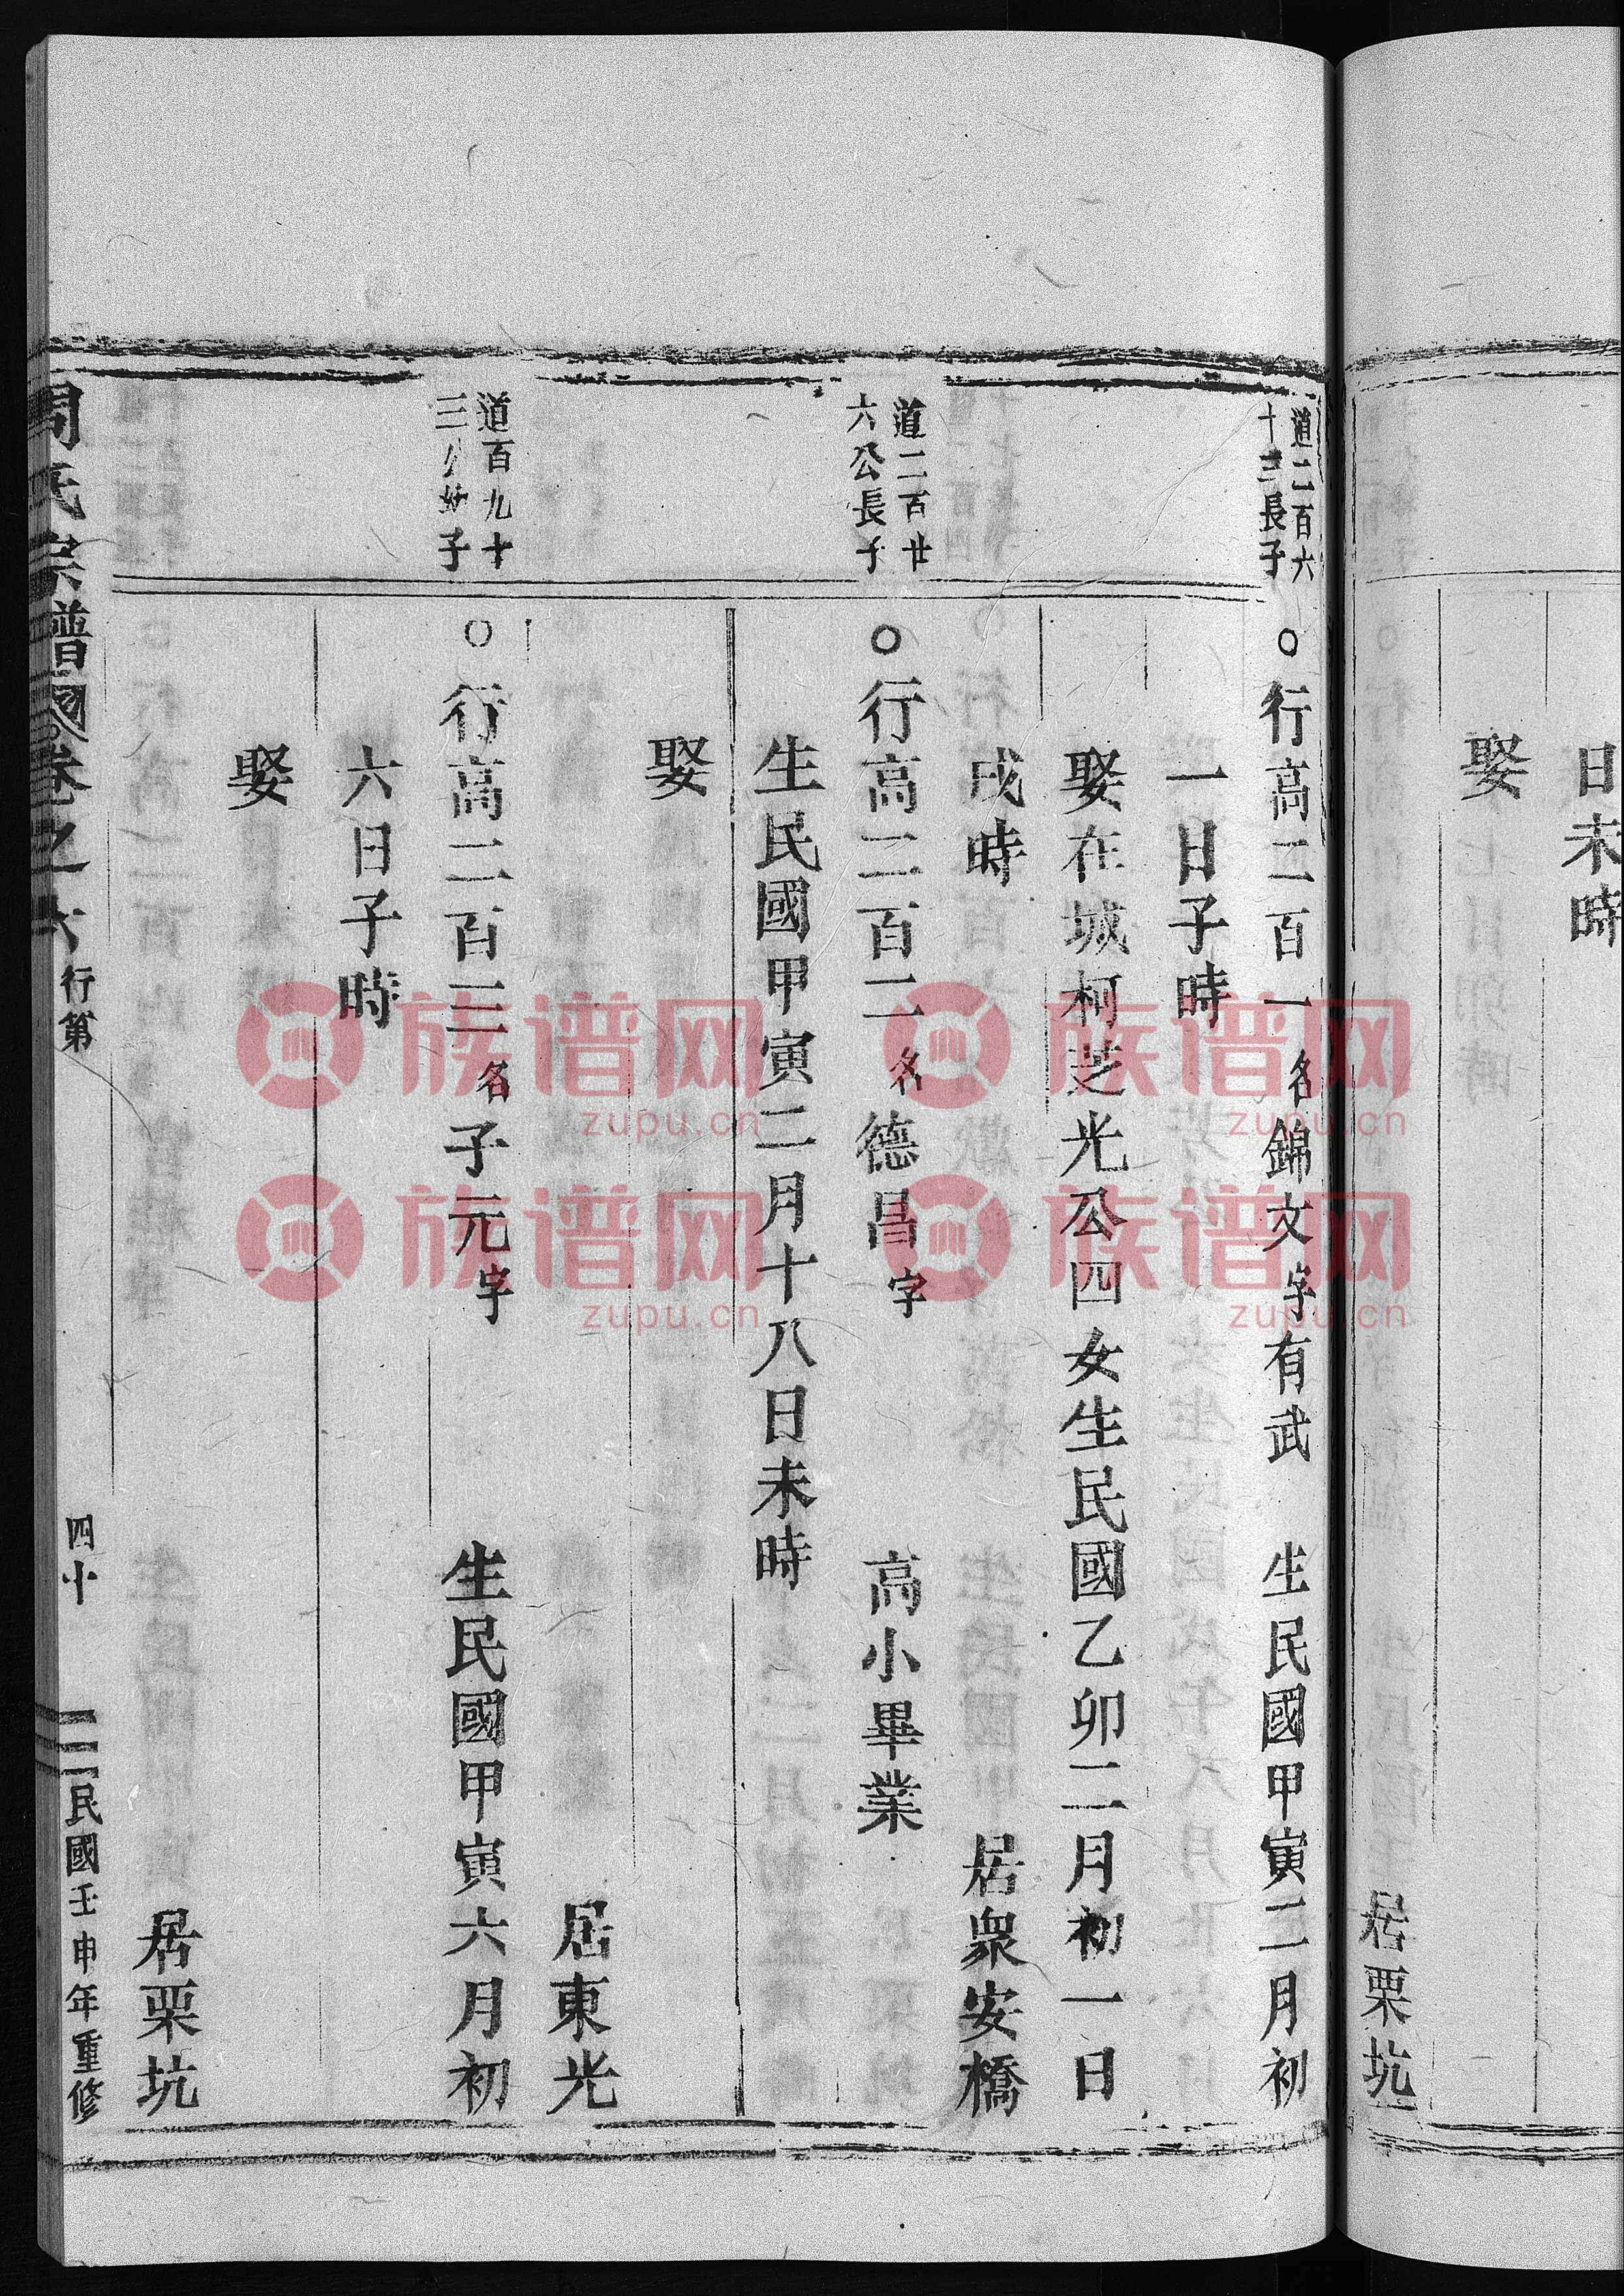 日未時
娶
居栗坑
道二百六
十三長子
○行高二百一名錦文字有武 生民國甲寅二月初
一日子時
娶在城柯芝光公四女生民國乙卯二月初一日
戌時 居衆安橋
道二百廿
六公長子
○行高二百二名德昌字 高小畢業
生民國甲寅二月十八日未時
娶
居東光
道百九十
三 子
○行高二百三名子元字 生民國甲寅六月初
六日子時
娶
居栗坑
周氏宗譜 卷之六 行第 四十 民國壬申年重修
族谱网
zupu.cn
族谱网
zupu.cn
族谱网
zupu.cn
族谱网
zupu.cn